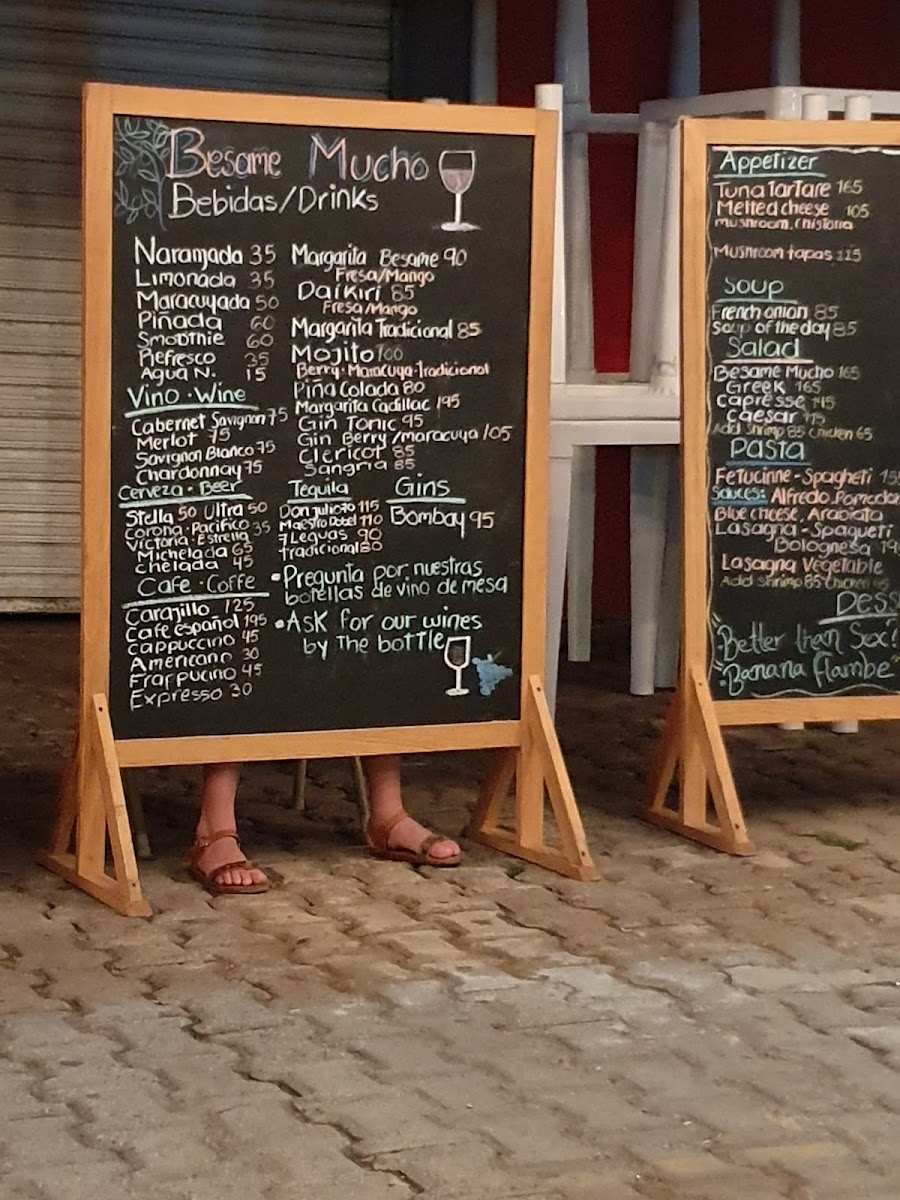 Besame Mucho
Bebidas/Drinks
Naranjada 35
Limonada 35
Maracuyada 50
Piñada 60
Smoothie 60
Refresco 35
Agua N. 15
Vino · Wine
Cabernet Savignon 75
Merlot 75
Savignon Blanco 75
Chardonnay 75
Cerveza · Beer
Stella 50 Ultra 50
Corona · Pacifico
Victoria · Estrella 35
Michelada 65
chelada 45
Cafe · Coffe
Carajillo 125
Cafe español 195
cappuccino 45
Americano 30
Frappucino 45
Expresso 30
Margarita Besame 90
Fresa/Mango
Daikiri 85
Fresa/Mango
Margarita Tradicional 85
Mojito 100
Berry · Maracuya · Tradicional
Piña Colada 80
Margarita Cadillac 195
Gin Tonic 95
Gin Berry/maracuya 105
Clericot 85
Sangria 85
Tequila
Don Julio 70 115
Maestro Dobel 110
7 Leguas 90
Tradicional 80
Gins
Bombay 95
• Pregunta por nuestras
botellas de vino de mesa
• ASK for our wines
by The bottle
Appetizer
Tuna tartare 165
Melted cheese 105
mushroom, Chistorra
Mushroom tapas 125
Soup
French onion 85
Soup of the day 85
Salad
Besame Mucho 165
Greek 165
Capresse 145
Caesar
Add Shrimp 85 Chicken 65
Pasta
Fetucinne - Spagheti
Sauces: Alfredo, Pomodor
Blue cheese, Arabiata
Lasagna - Spaqueti
Bolognesa
Lasagna Vegetable
Add Shrimp 85 Chicken
Dess
"Better than Sex!
"Banana flambe"